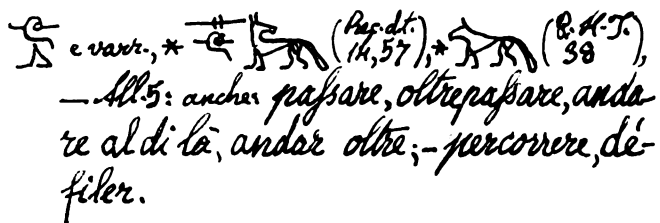 e varr., * (Rec. d. t. 14,57), * (R. H. T. 38),
— All. 5: anche: paſsare, oltrepaſsare, anda-
re al di là, andar oltre; – percorrere, dé-
filer.